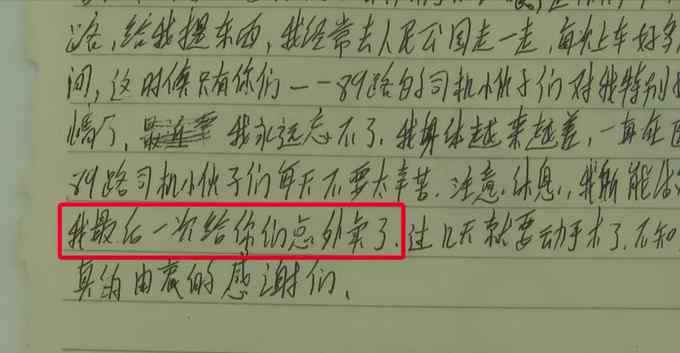 路，给我提东西，我经常去人民公园走一走，每次上车好多
间，这时候只有你们——89路的司机小伙子们对我特别
情了，我永远忘不了。我身体越来越差，一直在医
89路司机小伙子们每天不要太辛苦．注意休息，我所能做
我最后一次给你们点外卖了．过几天就要动手术了．不知
真的由衷的感谢们、